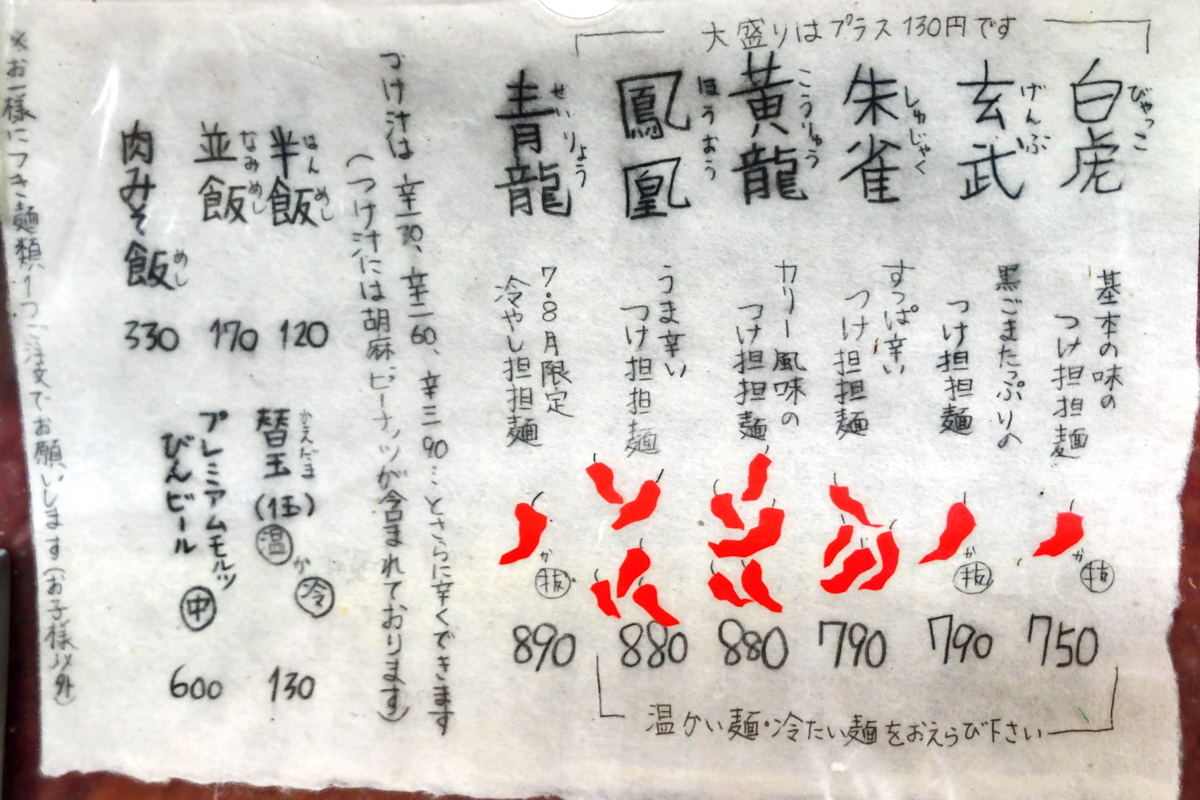 大盛りはプラス130円です
白虎 びゃっこ
基本の味の
つけ担担麺
か抜
750
玄武 げんぶ
黒ごまたっぷりの
つけ担担麺
か抜
790
朱雀 しゅじゃく
すっぱ辛い
つけ担担麺
790
黄龍 こうりゅう
カリー風味の
つけ担担麺
880
鳳凰 ほうおう
うま辛い
つけ担担麺
880
青龍 せいりょう
7・8月限定
冷やし担担麺
か抜
890
温かい麺・冷たい麺をおえらび下さい
つけ汁は 辛一30、辛二60、辛三90…とさらに辛くできます
(つけ汁には胡麻、ピーナッツが含まれております)
半飯 はんめし
120
並飯 なみめし
170
肉みそ飯 めし
330
替玉(1玉) かえだま
温か冷
130
プレミアムモルツ
びんビール 中
600
※お一様につき麺類1つご注文でお願いします(お子様以外)